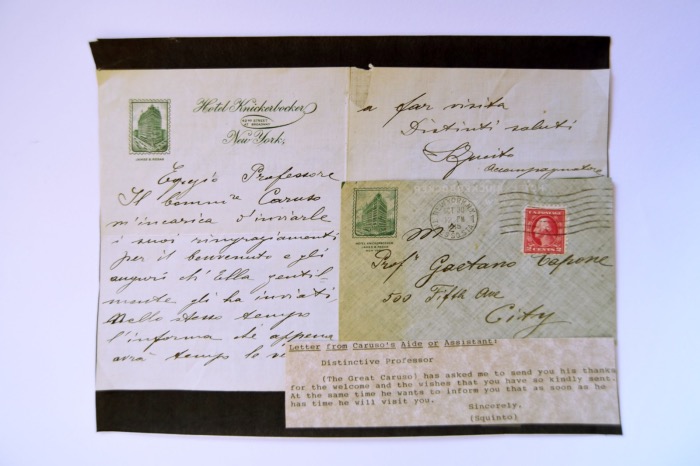 Hotel Knickerbocker
42ND STREET
AT BROADWAY
New York,
JAMES B. REGAN
Egregio Professore
Il Comm.re Caruso
m'incarica d'inviarle
i suoi ringraziamenti
per il benvenuto e gli
auguri ch'Ella gentil-
mente gli ha inviati
Nello stesso tempo
l'informa che appena
avrà tempo lo
a far visita
Distinti saluti
Accompagnatore
HOTEL KNICKERBOCKER
JAMES B. REGAN
NEW YORK
Prof Gaetano Capone
500 Fifth Ave
City
Letter from Caruso's Aide or Assistant:
Distinctive Professor
(The Great Caruso) has asked me to send you his thanks
for the welcome and the wishes that you have so kindly sent.
At the same time he wants to inform you that as soon as he
has time he will visit you.
Sincerely,
(Squinto)